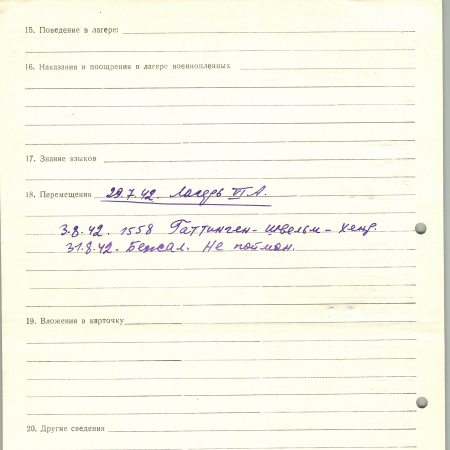 15. Поведение в лагере:
16. Наказания и поощрения в лагере военнопленных
17. Знание языков
18. Перемещения 29.7.42. Лагерь VI А.
3.8.42. 1558 Гаттинген - Швельм - Хенр.
31.8.42. Бежал. Не пойман.
19. Вложения в карточку
20. Другие сведения